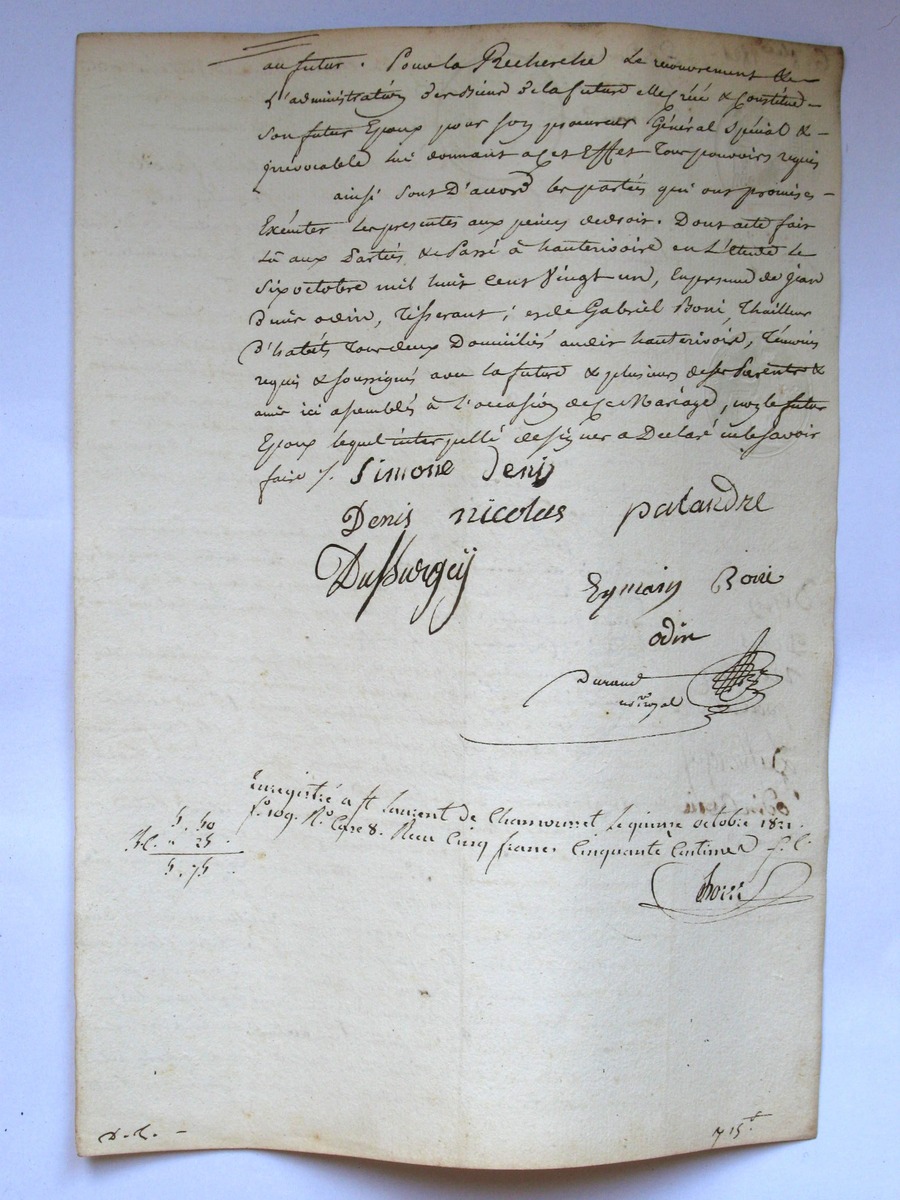 au futur. Pour la Recherche le recouvrement &
L'administration des Biens de la future elle Créé & Constitué
son futur Epoux pour son procureur Général Spécial &
irrevocable lui donnant a cet Effet tous pouvoirs requis
ainsi sont D'accord les parties qui ont promises
Exécuter les presentes aux peines de droit. Dont acte fait
Lû aux Parties & Passé à hauterivoire en L'étude Le
Six octobre mil huit cent Vingt un, En presence de jean
odin, Tisserant, et de Gabriel Boni, Thailleur
d'habits tous deux Domiciliés audit hauterivoire, Témoins
requis & soussignés avec la future & plusieurs des Parents &
amis ici assemblés à L'occasion de ce Mariage, non le futur
Epoux lequel interpellé de signer a Declaré ne le savoir
faire /. Simone Denis
Denis nicolas palandre
Dussurgey
Eymain Boni
odin
Durand
no.re royal
Enregistré a St Laurent de Chamousset le quinze octobre 1821.
f.o 109. R.o Case 8. Reçu Cinq francs Cinquante Centimes
5. 50
25
5. 75
D. C. -
7 15